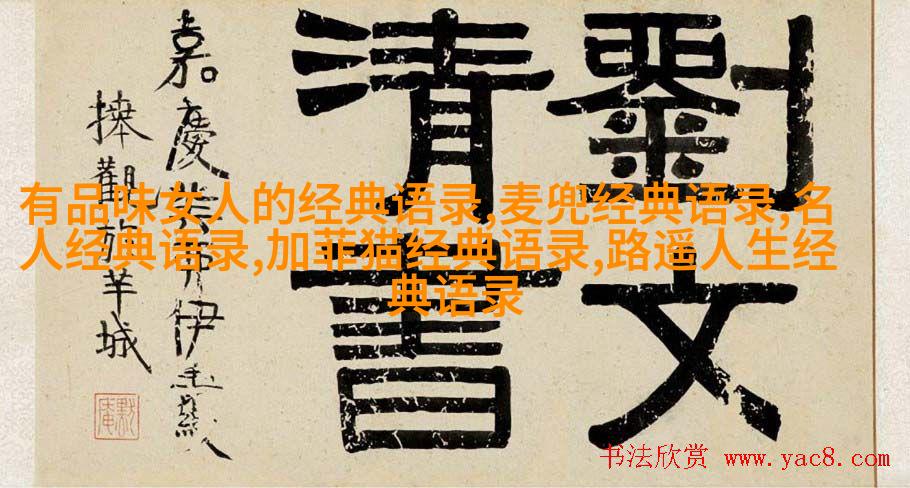 劉文
清書
嘉慶癸亥伊秉綬
捧觀於羊城
默庵
有品味女人的经典语录,麦兜经典语录,名
人经典语录,加菲猫经典语录,路遥人生经
典语录
书法欣赏 www.yac8.com